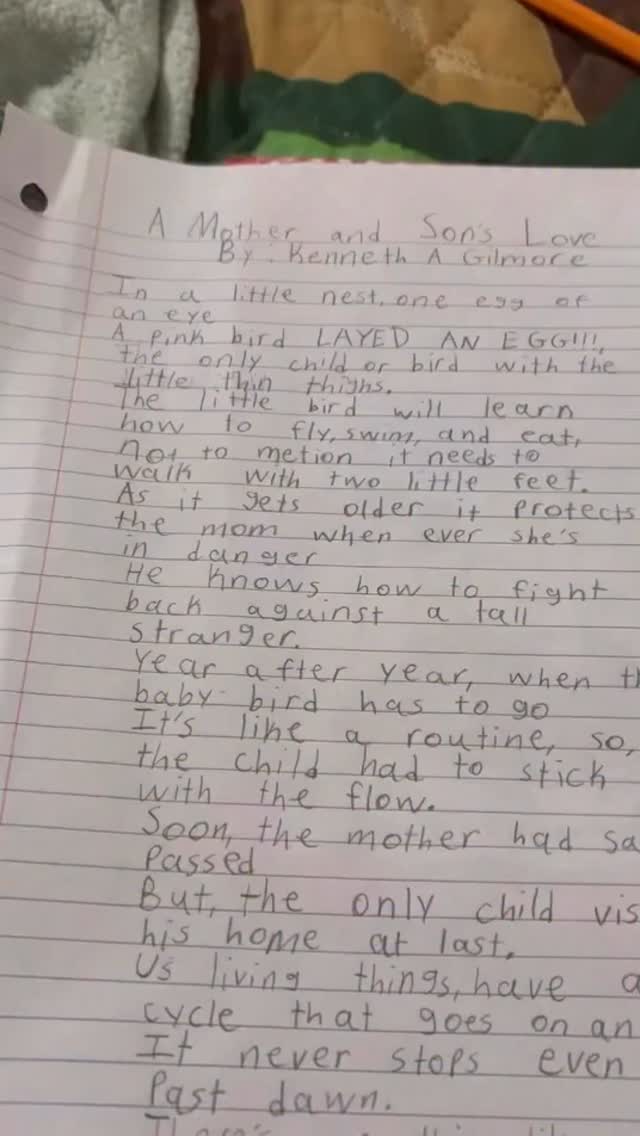 A Mother and Son's Love
By: Kenneth A Gilmore
In a little nest, one egg of
an eye
A pink bird LAYED AN EGG!!!,
the only child or bird with the
little thin thighs.
The little bird will learn
how to fly, swim, and eat,
not to metion it needs to
walk with two little feet.
As it gets older it protects
the mom when ever she's
in danger
He knows how to fight
back against a tall
stranger.
Year after year, when
baby bird has to go
It's like a routine, so,
the child had to stick
with the flow.
Soon, the mother had
passed
But, the only child
his home at last.
Us living things, have a
cycle that goes on
It never stops even
Past dawn.